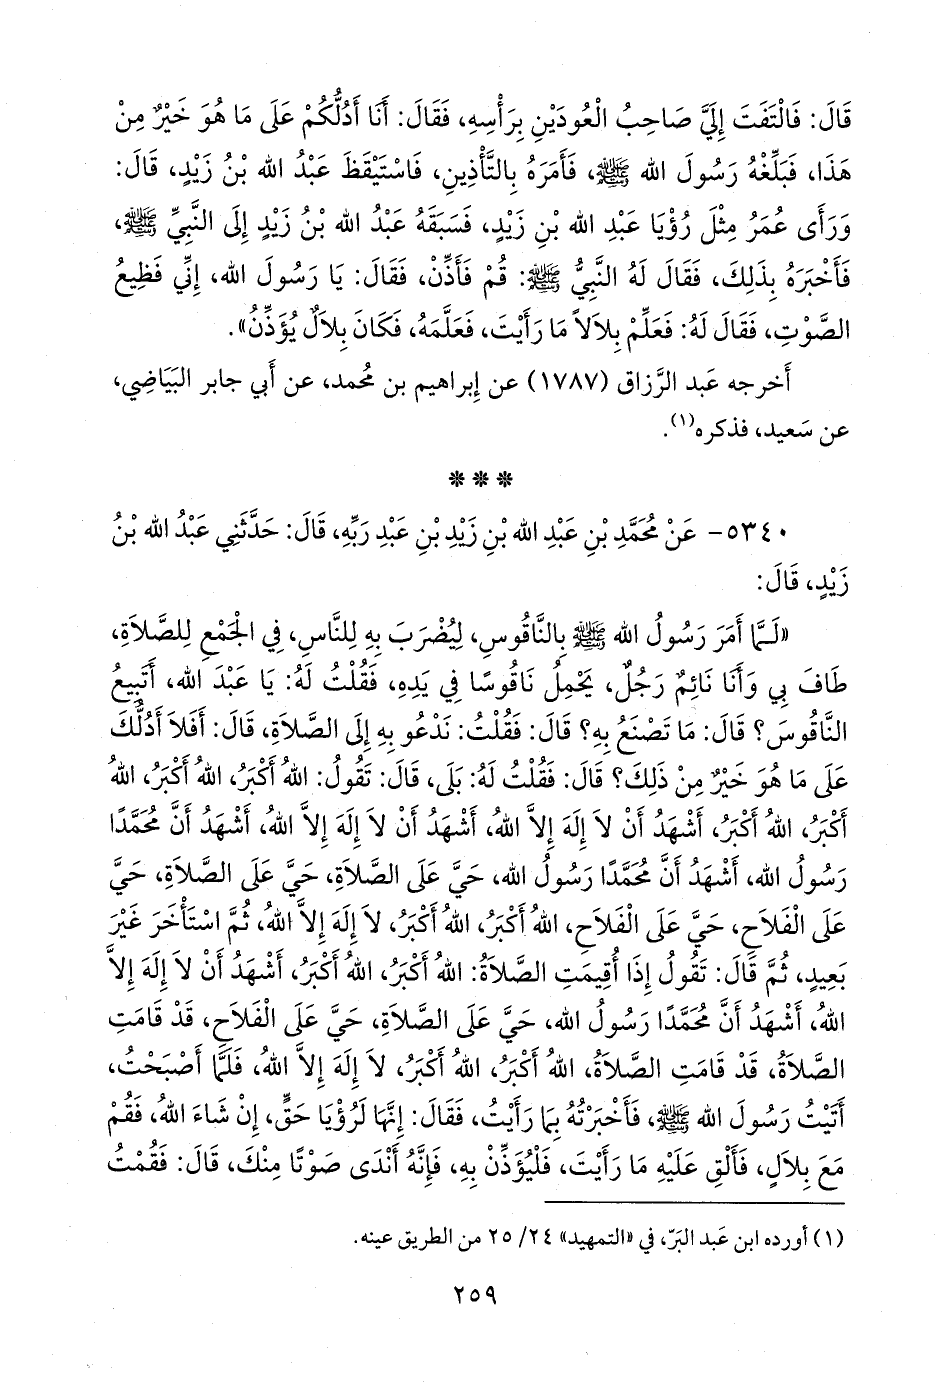 قَالَ: فَالْتَفَتَ إِلَيَّ صَاحِبُ الْعُودَيْنِ بِرَأْسِهِ، فَقَالَ: أَنَا أَدُلُّكُمْ عَلَى مَا هُوَ خَيْرٌ مِنْ
هَذَا، فَبَلِّغْهُ رَسُولَ الله ﷺ، فَأَمَرَهُ بِالتَّأْذِينِ، فَاسْتَيْقَظَ عَبْدُ الله بْنُ زَيْدٍ، قَالَ:
وَرَأَى عُمَرُ مِثْلَ رُؤْيَا عَبْدِ الله بْنِ زَيْدٍ، فَسَبَقَهُ عَبْدُ الله بْنُ زَيْدٍ إِلَى النَّبِيِّ ﷺ،
فَأَخْبَرَهُ بِذَلِكَ، فَقَالَ لَهُ النَّبِيُّ ﷺ: قُمْ فَأَذِّنْ، فَقَالَ: يَا رَسُولَ الله، إِنِّي فَظِيعُ
الصَّوْتِ، فَقَالَ لَهُ: فَعَلِّمْ بِلاَلاً مَا رَأَيْتَ، فَعَلَّمَهُ، فَكَانَ بِلاَلٌ يُؤَذِّنُ».
أَخرجه عَبد الرَّزاق (١٧٨٧) عن إِبراهيم بن مُحمد، عن أَبي جابر البَيَاضِي،
عن سَعيد، فذكره(١).
***
٥٣٤٠- عَنْ مُحَمَّدِ بْنِ عَبْدِ الله بْنِ زَيْدِ بْنِ عَبْدِ رَبِّهِ، قَالَ: حَدَّثَنِي عَبْدُ الله بْنُ
زَيْدٍ، قَالَ:
«لَـمَّا أَمَرَ رَسُولُ الله ﷺ بِالنَّاقُوسِ، لِيُضْرَبَ بِهِ لِلنَّاسِ، فِي الْجَمْعِ لِلصَّلاَةِ،
طَافَ بِي وَأَنَا نَائِمٌ رَجُلٌ، يَحْمِلُ نَاقُوسًا فِي يَدِهِ، فَقُلْتُ لَهُ: يَا عَبْدَ الله، أَتَبِيعُ
النَّاقُوسَ؟ قَالَ: مَا تَصْنَعُ بِهِ؟ قَالَ: فَقُلْتُ: نَدْعُو بِهِ إِلَى الصَّلاَةِ، قَالَ: أَفَلاَ أَدُلُّكَ
عَلَى مَا هُوَ خَيْرٌ مِنْ ذَلِكَ؟ قَالَ: فَقُلْتُ لَهُ: بَلَى، قَالَ: تَقُولُ: اللهُ أَكْبَرُ، اللهُ أَكْبَرُ، اللهُ
أَكْبَرُ، اللهُ أَكْبَرُ، أَشْهَدُ أَنْ لاَ إِلَهَ إِلاَّ اللهُ، أَشْهَدُ أَنْ لاَ إِلَهَ إِلاَّ اللهُ، أَشْهَدُ أَنَّ مُحَمَّدًا
رَسُولُ الله، أَشْهَدُ أَنَّ مُحَمَّدًا رَسُولُ الله، حَيَّ عَلَى الصَّلاَةِ، حَيَّ عَلَى الصَّلاَةِ، حَيَّ
عَلَى الْفَلاَحِ، حَيَّ عَلَى الْفَلاَحِ، اللهُ أَكْبَرُ، اللهُ أَكْبَرُ، لاَ إِلَهَ إِلاَّ اللهُ، ثُمَّ اسْتَأْخَرَ غَيْرَ
بَعِيدٍ، ثُمَّ قَالَ: تَقُولُ إِذَا أُقِيمَتِ الصَّلاَةُ: اللهُ أَكْبَرُ، اللهُ أَكْبَرُ، أَشْهَدُ أَنْ لاَ إِلَهَ إِلاَّ
اللهُ، أَشْهَدُ أَنَّ مُحَمَّدًا رَسُولُ الله، حَيَّ عَلَى الصَّلاَةِ، حَيَّ عَلَى الْفَلاَحِ، قَدْ قَامَتِ
الصَّلاَةُ، قَدْ قَامَتِ الصَّلاَةُ، اللهُ أَكْبَرُ، اللهُ أَكْبَرُ، لاَ إِلَهَ إِلاَّ اللهُ، فَلَمَّا أَصْبَحْتُ،
أَتَيْتُ رَسُولَ الله ﷺ، فَأَخْبَرْتُهُ بِمَا رَأَيْتُ، فَقَالَ: إِنَّهَا لَرُؤْيَا حَقٌّ، إِنْ شَاءَ اللهُ، فَقُمْ
مَعَ بِلاَلٍ، فَأَلْقِ عَلَيْهِ مَا رَأَيْتَ، فَلْيُؤَذِّنْ بِهِ، فَإِنَّهُ أَنْدَى صَوْتًا مِنْكَ، قَالَ: فَقُمْتُ
(١) أورده ابن عَبد البَرّ، في «التمهيد» ٢٤/ ٢٥ من الطريق عينه.
٢٥٩